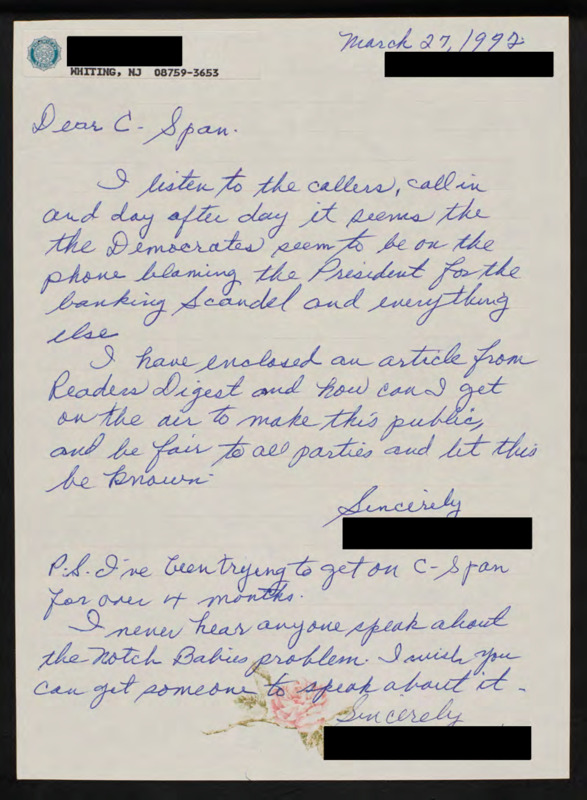 March 27, 1992
WHITING, NJ 08759-3653
Dear C-Span.
I listen to the callers, call in
and day after day it seems the
the Democrates seem to be on the
phone blaming the President for the
banking Scandel and everything
else
I have enclosed an article from
Readers Digest and how can I get
on the air to make this public,
and be fair to all parties and let this
be known.
Sincerely
P.S. I've been trying to get on C-Span
for over 4 months.
I never hear anyone speak about
the Notch Babies problem. I wish you
can get someone to speak about it -
Sincerely